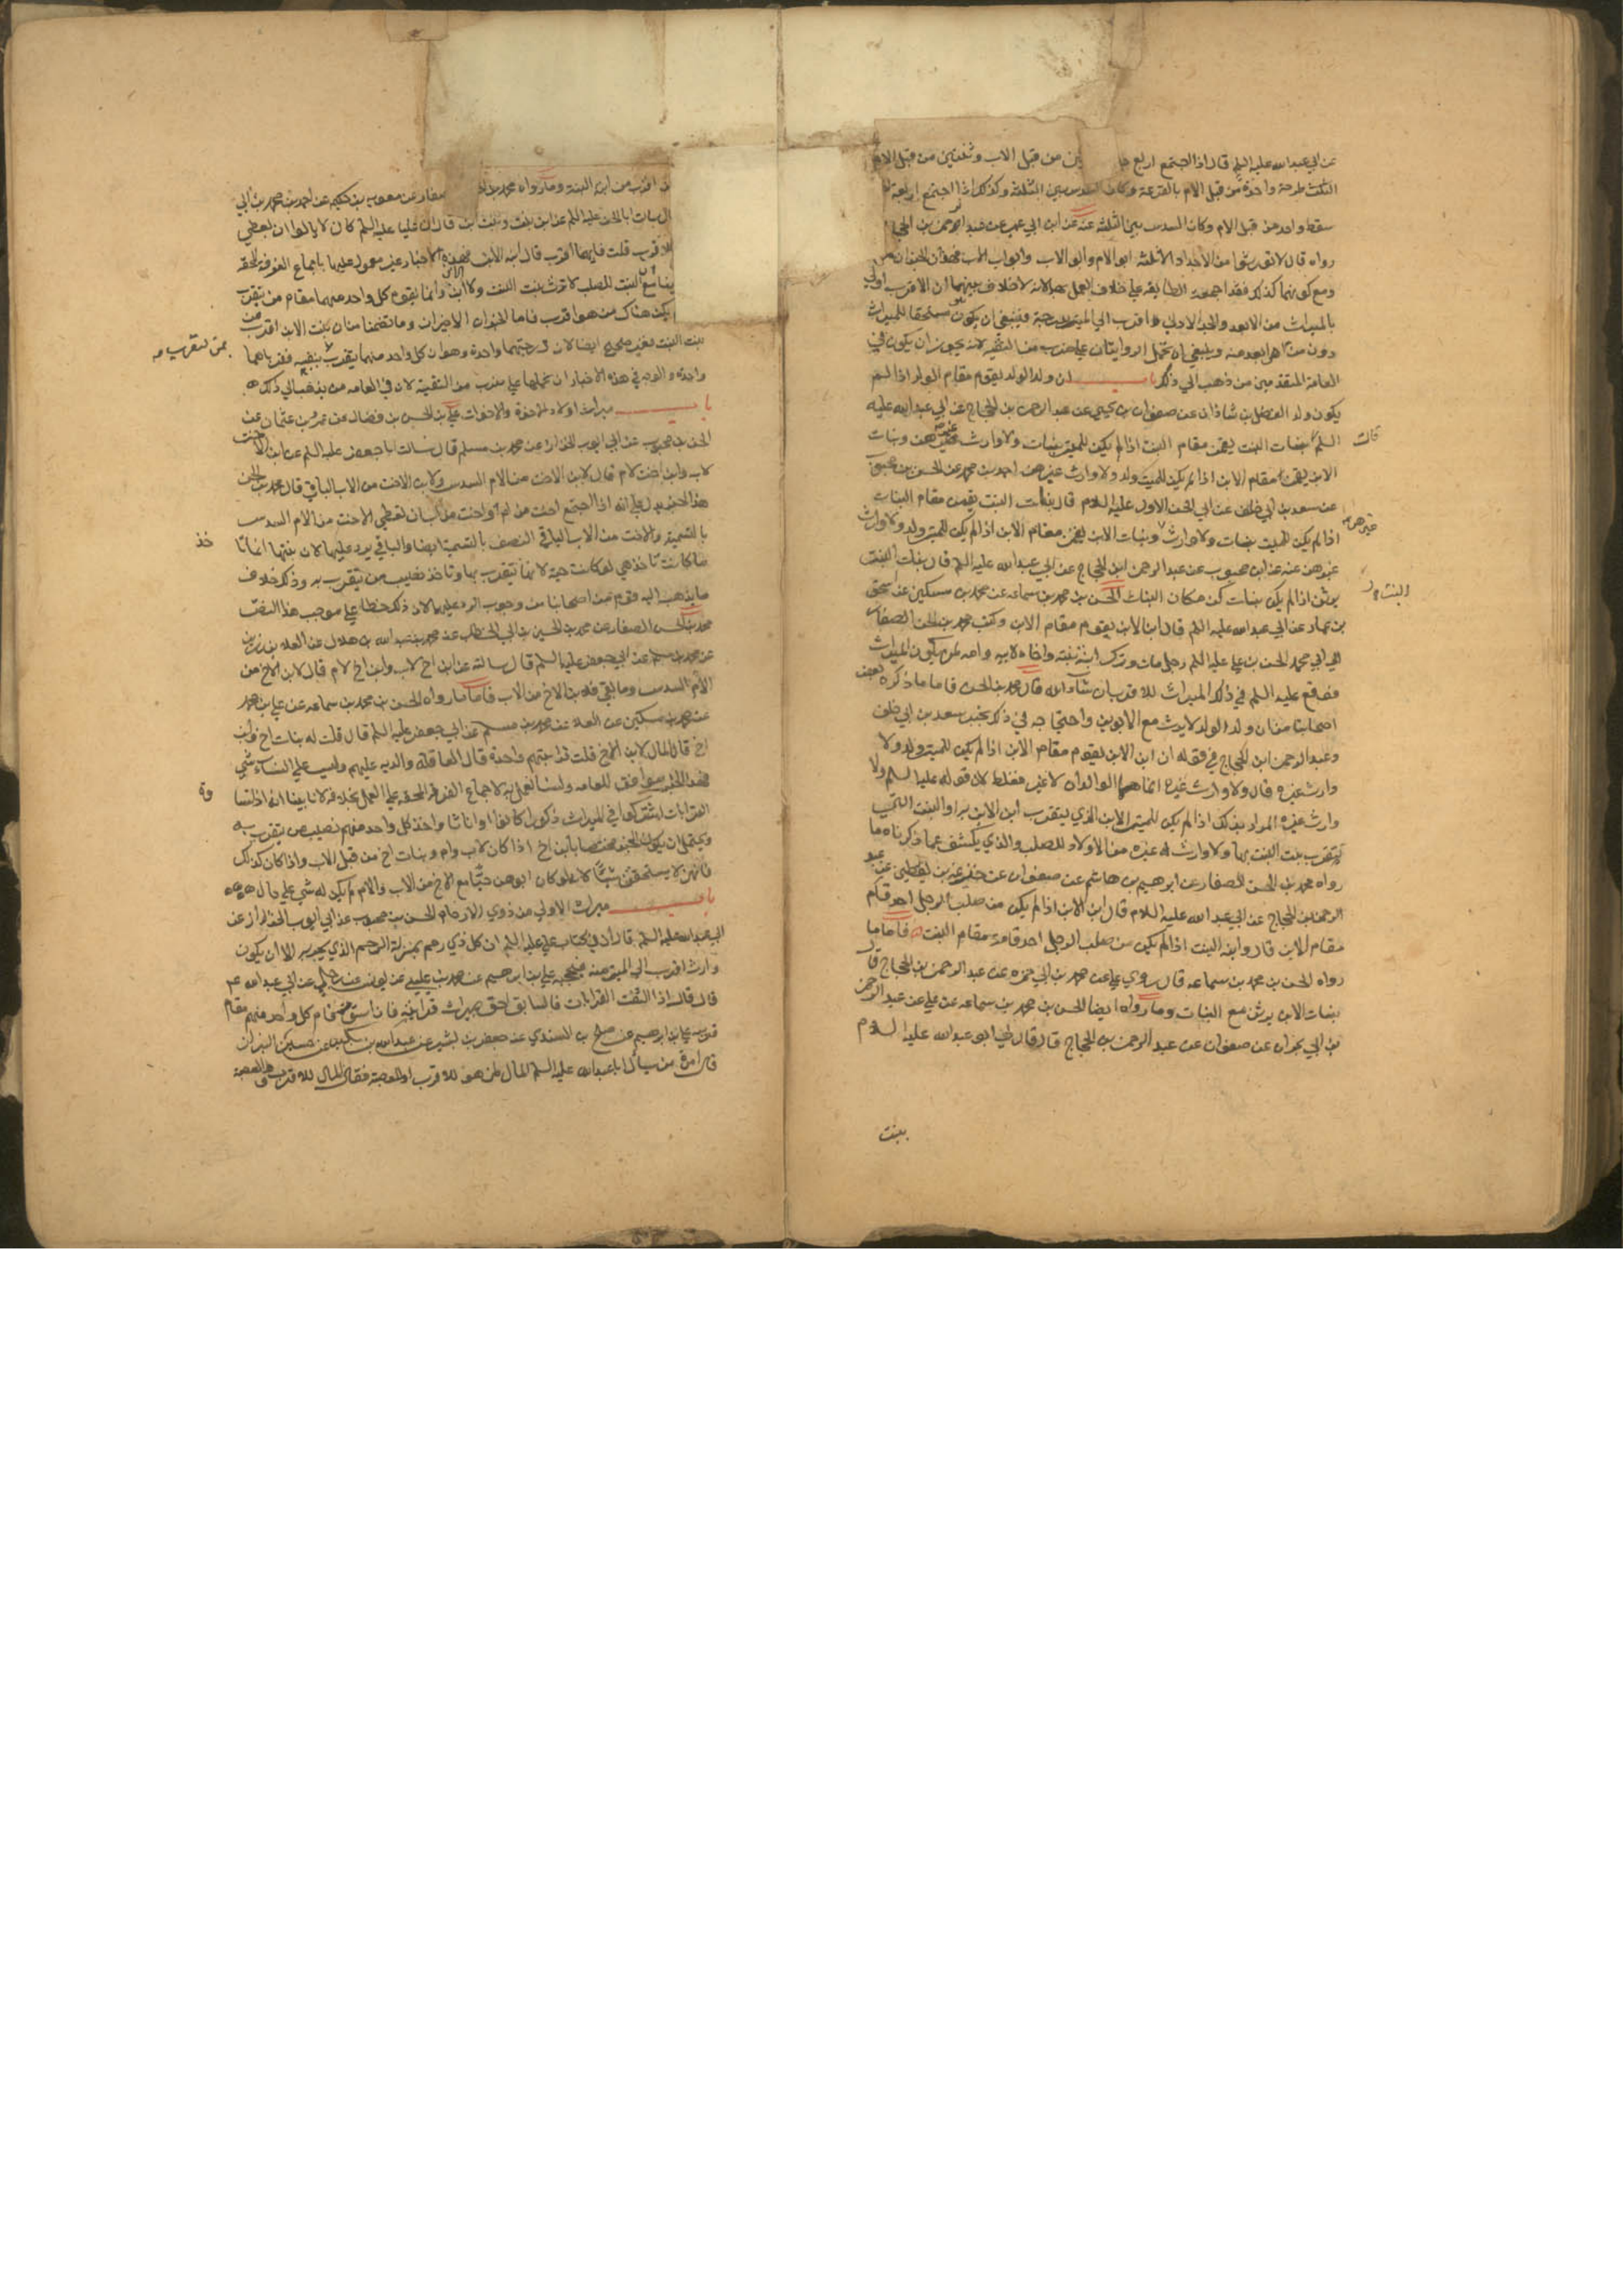 عن ابي عبد الله عليه السلم قال اذا اجتمع اربع جدات ثنتين من قبل الاب وثنتين من قبل الام
الثلث طرحت واحدة من قبل الام بالقرعة وكان السدس بين الثلثة وكذلك اذا اجتمع اربعة
سقط واحد من قبل الام وكان السدس بين الثلثة عنه عن ابن ابي عمير عن عبد الرحمن بن الحجاج
رواه قال لا تورثوا من الاجداد الا ثلثة ابو الام وابو الاب وابو اب الاب فهذان الخبران
ومع كونهما كذلك فقد اجمعت الطايفة على خلاف العمل بهما لانه لا خلاف بينهما ان الاقرب اولى
بالميراث من الابعد والجد الادنى اقرب الى الميت بدرجة فينبغي ان يكون مستحقا للميراث
دون من هو ابعد منه وينبغي ان تحمل الروايتان على ضرب من التقية لانه يجوز ان يكون في
العامة المتقدمين من ذهب الى ذلك باب ان ولد الولد يقوم مقام الولد اذا لم
يكون ولد الفضل بن شاذان عن صفوان بن يحيى عن عبد الرحمن بن الحجاج عن ابي عبد الله عليه
السلم قال بنات البنت يقمن مقام البنت اذا لم يكن للميت بنات ولا وارث غيرهن وبنات
الابن يقمن مقام الابن اذا لم يكن للميت ولد ولا وارث غيرهن احمد بن محمد عن الحسن بن محبوب
عن سعد بن ابي خلف عن ابي الحسن الاول عليه السلام قال بنات البنت يقمن مقام البنات
اذا لم يكن للميت بنات ولا وارث غيرهن وبنات الابن يقمن مقام الابن اذا لم يكن للميت ولد ولا وارث
غيرهن عنه عن ابن محبوب عن عبد الرحمن ابن الحجاج عن ابي عبد الله عليه السلم قال بنات البنت
يرثن اذا لم يكن بنات كن مكان البنات الحسن بن محمد بن سماعه عن محمد بن سكين عن اسحق
بن عمار عن ابي عبد الله عليه السلم قال ابن الابن يقوم مقام الابن وكتب محمد بن الحسن الصفار
الى ابي محمد الحسن بن علي عليه السلم رجل مات وترك ابنة بنته واخاه لابيه وامه لمن يكون الميراث
فوقع عليه السلم في ذلك الميراث للاقرب ان شآء الله قال محمد بن الحسن فاما ما ذكره بعض
اصحابنا من ان ولد الولد لا يرث مع الابوين واحتجاجه في ذلك بخبر سعد بن ابي خلف
وعبد الرحمن ابن الحجاج في قوله ان ابن الابن يقوم مقام الابن اذا لم يكن للميت ولد ولا
وارث غيره قال ولا وارث غيره انما هما الوالدان لا غير فغلط لان قوله عليه السلم ولا
وارث غيره المراد بذلك اذا لم يكن للميت الابن الذي يتقرب ابن الابن به او البنت التي
يتقرب بنت البنت بها ولا وارث له غيره من الاولاد للصلب والذي يكشف عما ذكرناه ما
رواه محمد بن الحسن الصفار عن ابرهيم بن هاشم عن صفوان عن خزيمة بن يقطين عن عبد
الرحمن بن الحجاج عن ابي عبد الله عليه السلام قال ابن الابن اذا لم يكن من صلب الرجل احد قام
مقام الابن قال وابنة البنت اذا لم يكن من صلب الرجل احد قامت مقام البنت فاما ما
رواه الحسن بن محمد بن سماعه قال روى علي عن محمد بن ابي حمزه عن عبد الرحمن بن الحجاج قال
بنات الابن يرثن مع البنات وما رواه ايضا الحسن بن محمد بن سماعه عن علي عن عبد الرحمن
بن ابي نجران عن صفوان عن عبد الرحمن بن الحجاج قال قال لي ابو عبد الله عليه السلام
قال
غيرهن
البنت
ببنت
اقرب من ابن البنت وما رواه محمد بن الصفار عن معوية بن حكيم عن احمد بن محمد بن ابي
قال سالت ابا الحسن عليه السلم عن ابن بنت وبنت ابن قال ان عليا عليه السلم كان لا يالوا ان يعطي
الاقرب قلت فايهما اقرب قال ابنة الابن فهذه الاخبار غير معمول عليها باجماع الفرقة المحقه
البنت للصلب لا ترث بنت البنت ولا ابن الابن وانما يقوم كل واحد منهما مقام من يتقرب
يكن هناك من هو اقرب فاما الخبران الاخيران وما تضمنا من ان بنت الابن اقرب من
بنت البنت فغير صحيح ايضا لان درجتهما واحدة وهو ان كل واحد منهما يتقرب بمن يتقرب بنفسه فقرباهما
واحدة والوجه في هذه الاخبار ان نحملها على ضرب من التقية لان في العامه من يذهب الى ذلك
باب ميراث اولاد الاخوة والاخوات علي بن الحسن بن فضال عن عمرو بن عثمان عن
الحسن بن محبوب عن ابي ايوب الخزاز عن محمد بن مسلم قال سالت ابا جعفر عليه السلم عن ابن الاخت
لاب وابن اخت لام قال لابن الاخت من الام السدس ولابن الاخت من الاب الباقي قال محمد بن الحسن
هذا الخبر يدل على انه اذا اجتمع اخت من ام واخت من اب ان تعطى الاخت من الام السدس
بالتسمية والاخت من الاب الباقي النصف بالتسمية ايضا والباقي يرد عليها لان بنتها انما تاخذ
ما كانت تاخذ هي لو كانت حية لانها تتقرب بها وتاخذ نصيب من يتقرب به وذلك خلاف
ما يذهب اليه قوم من اصحابنا من وجوب الرد عليهما لان ذلك خطا على موجب هذا النص
محمد بن الحسن الصفار عن محمد بن الحسين بن ابي الخطاب عن محمد بن عبد الله بن هلال عن العلاء بن رزين
عن محمد بن مسلم عن ابي جعفر عليه السلم قال سالته عن ابن اخ لاب وابن اخ لام قال لابن الاخ من
الام السدس وما بقي فلابن الاخ من الاب فاما ما رواه الحسن بن محمد بن سماعه عن علي بن محمد
عن محمد بن سكين عن العلاء عن محمد بن مسلم عن ابي جعفر عليه السلم قال قلت له بنات اخ وابن
اخ قال المال لابن الاخ قلت قرابتهم واحدة قال العاقلة والدية عليهم وليس على النساء شي
فهذا الخبر موافق للعامه ولسنا نعمل به لاجماع الفرقة المحقه على العمل بخلافه لانا بينا انه اذا تساوت
القرابات اشتركوا في الميراث ذكورا كانوا او اناثا واخذ كل واحد منهم نصيب من يتقرب به
ويحتمل ان يكون الخبر مختصا بابن اخ اذا كان لاب وام وبنات اخ من قبل الاب واذا كان كذلك
فانهن لا يستحققن شيئا كما لو كان ابوهن حيا مع الاخ من الاب والام لم يكن له شي على حال
باب ميراث الاولى من ذوي الارحام الحسن بن محبوب عن ابي ايوب الخزاز عن
ابي عبد الله عليه السلم قال ان في كتاب علي عليه السلم ان كل ذي رحم بمنزلة الرحم الذي يجر به الا ان يكون
وارث اقرب الى الميت منه فيحجبه علي بن ابرهيم عن محمد بن عيسى عن يونس عن رجل عن ابي عبد الله ع
قال قال اذا التفت القرابات فالسابق احق بميراث قرابته فان استوت قام كل واحد منهم مقام
قريبه علي بن ابرهيم عن صلح بن السندي عن جعفر بن بشير عن عبد الله بن بكير عن حسين البزاز
قال امرت من سال ابا عبد الله عليه السلم المال لمن هو للاقرب او للعصبة فقال المال للاقرب والعصبة
بمن يتقرب
خذ
وت